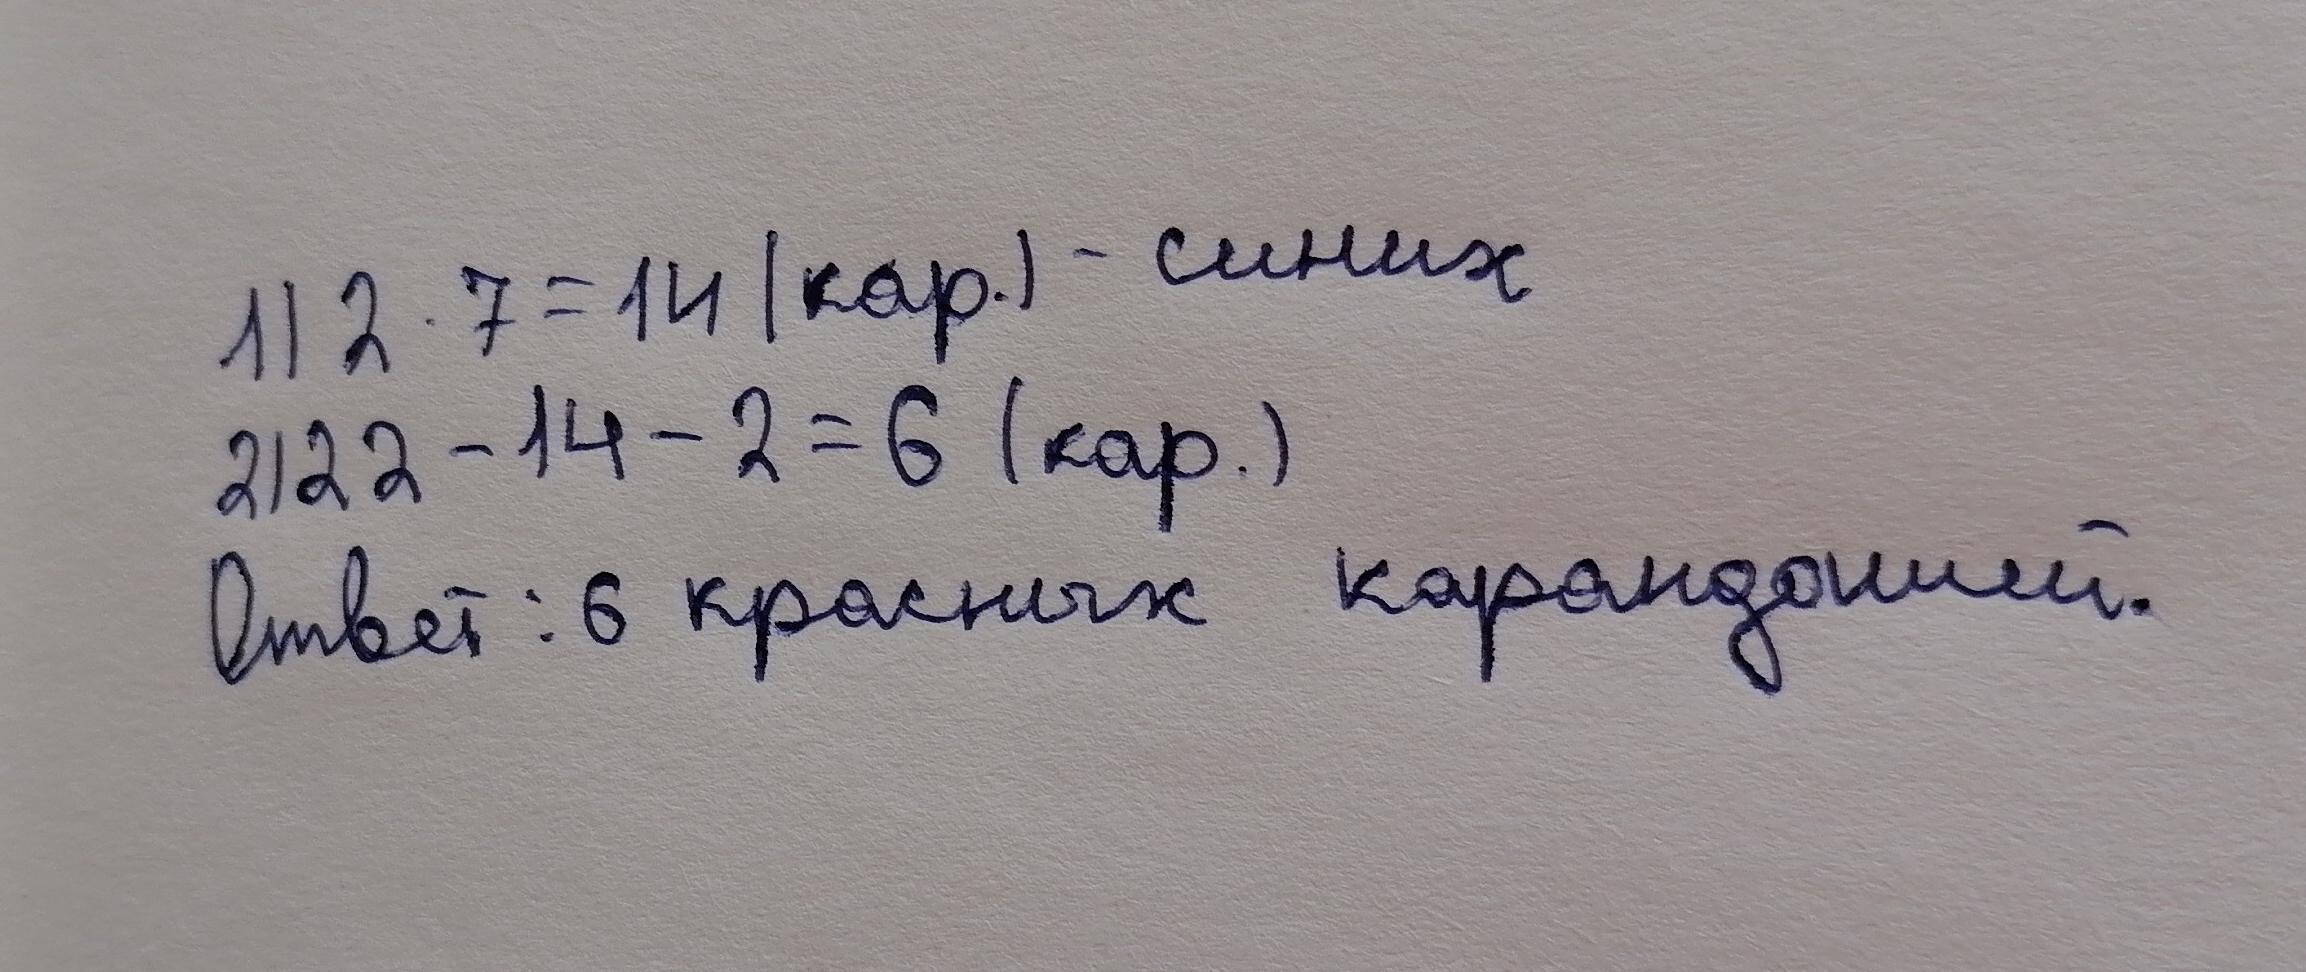 1) 2 · 7 = 14 (кар.) - синих
2) 22 - 14 - 2 = 6 (кар.)
Ответ: 6 красных карандашей.